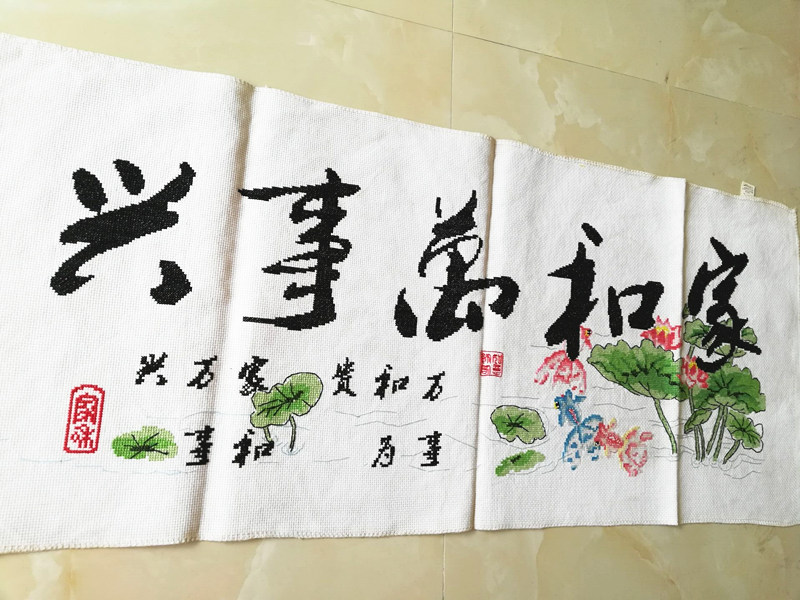 家和萬事兴
万事和为贵
家和万事兴
家和